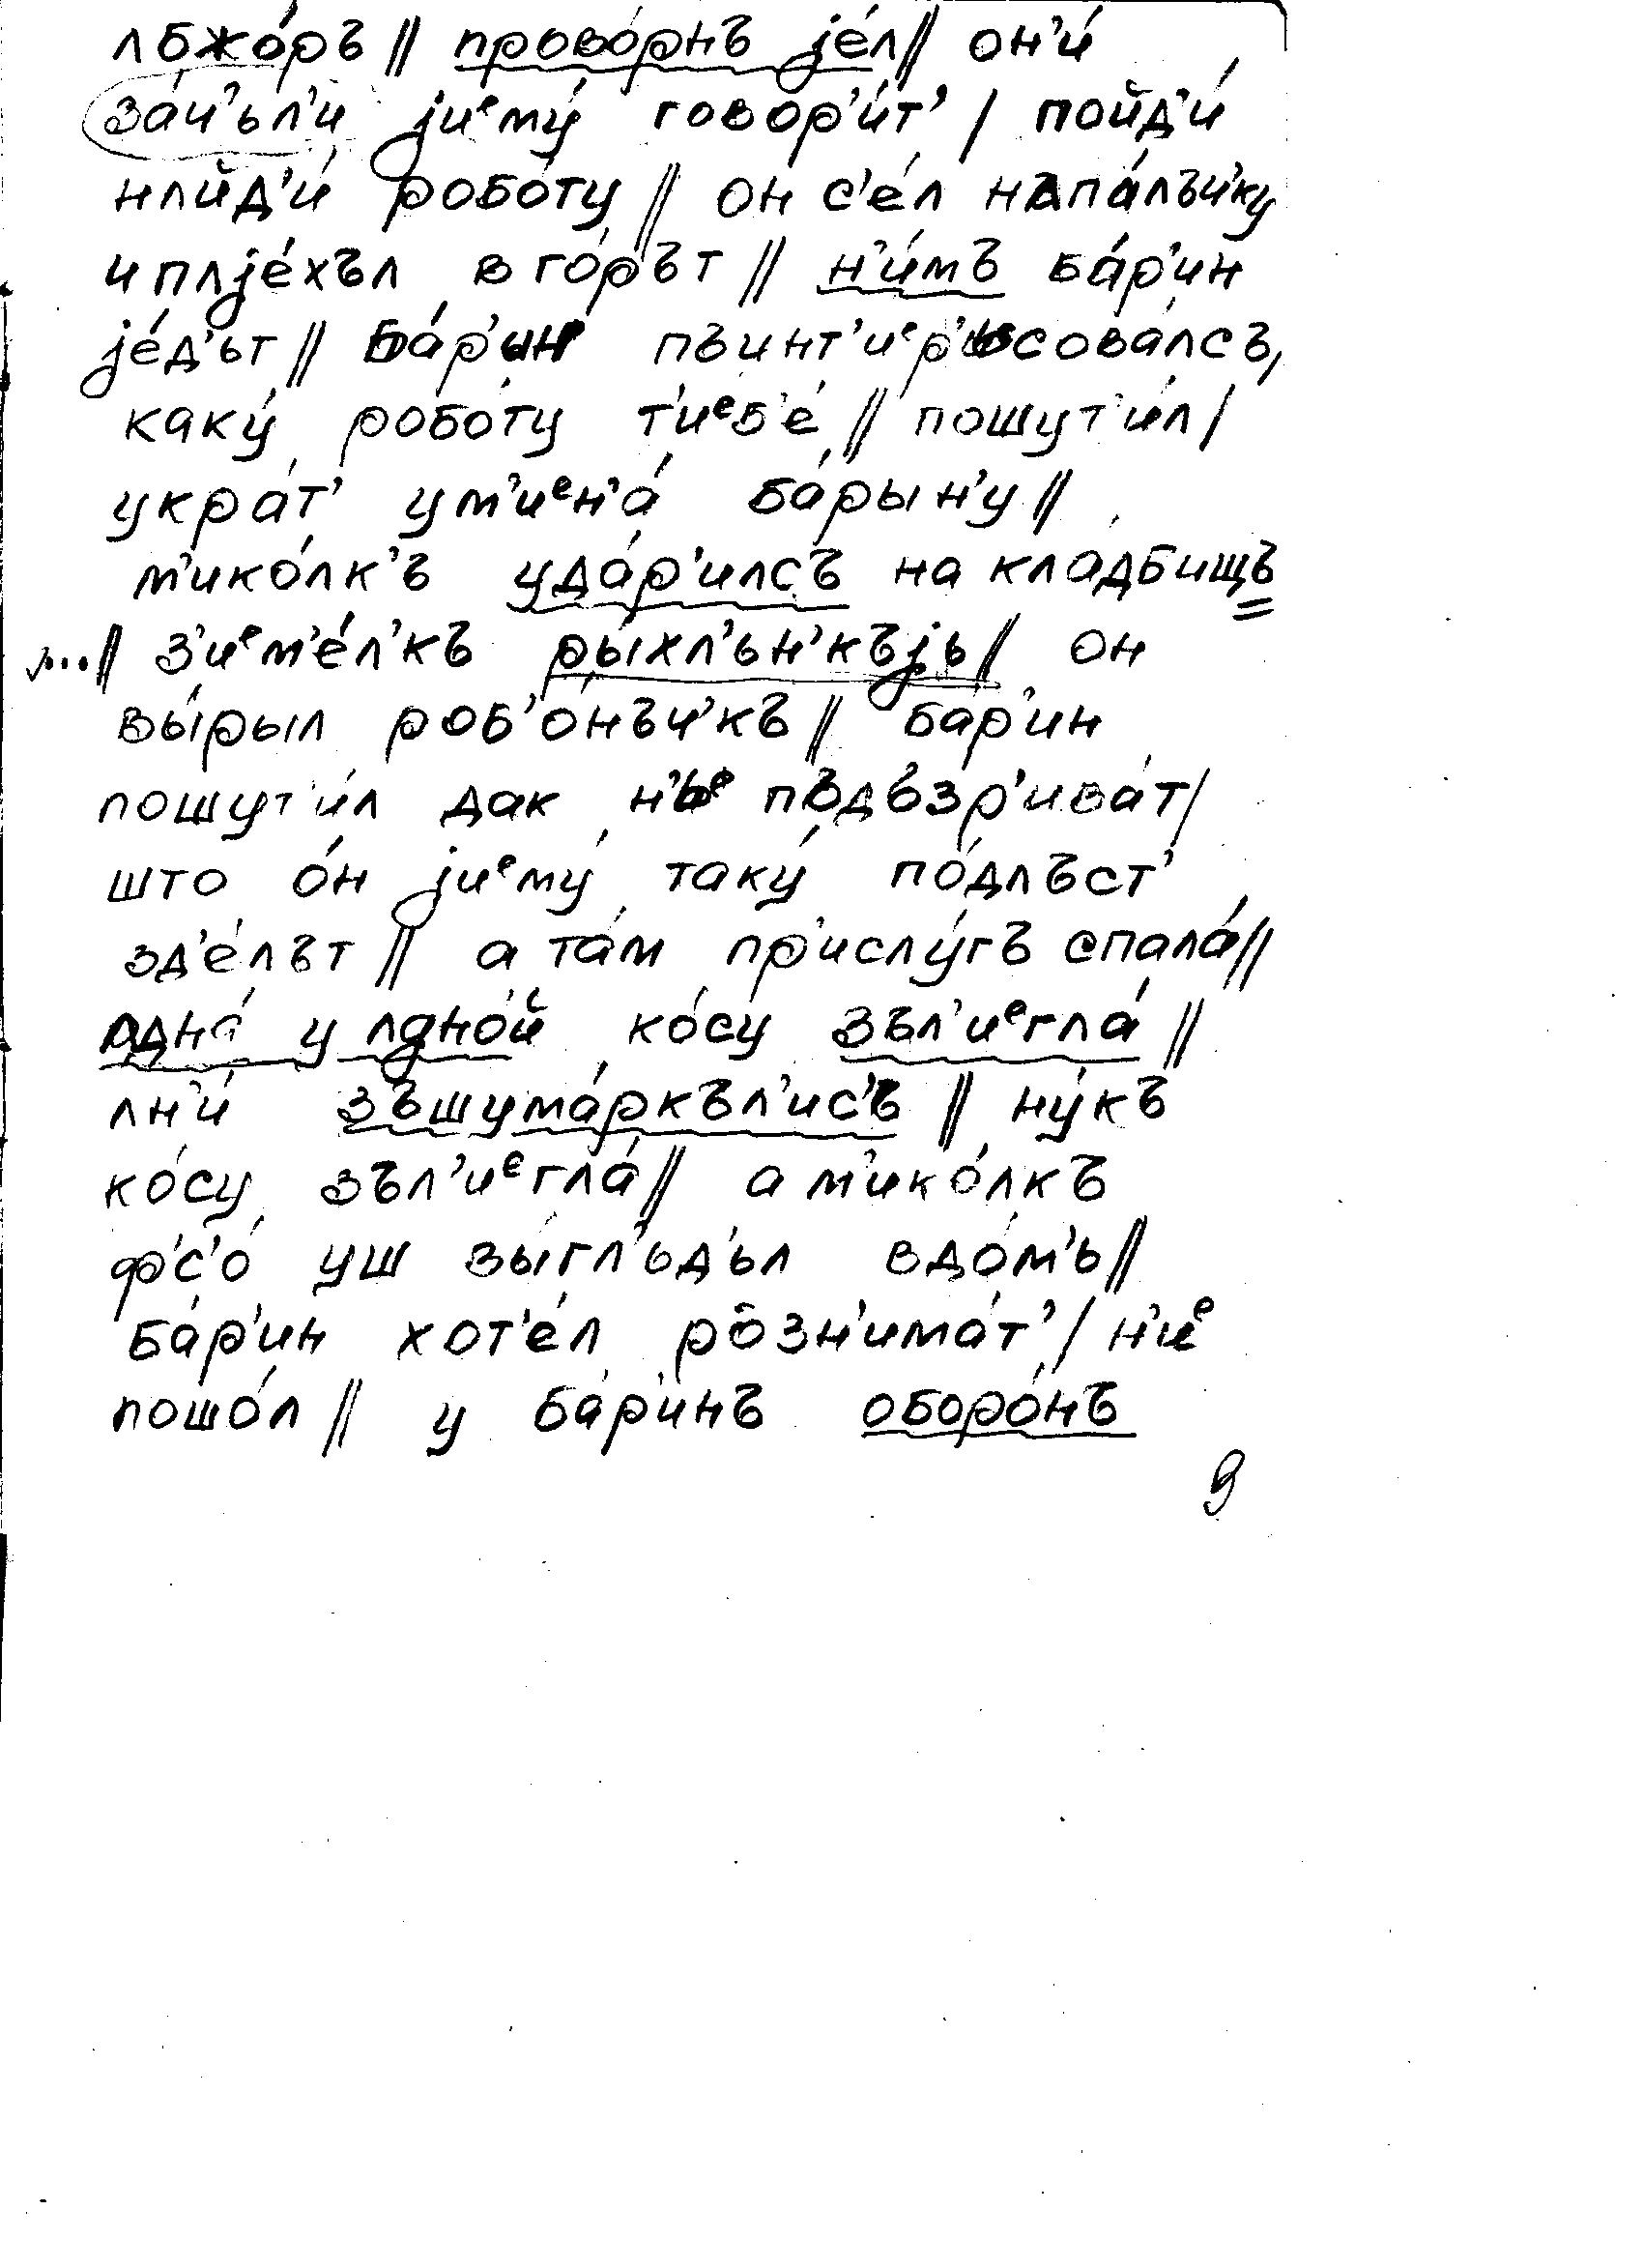 лбжо́ръ // прово́рнъ је́л // он'и́
за́ч'ьл'и јиᵉму́ говор'и́т' / пойд'и́
нлйд'и́ робо́ту // он с'е́л нʌпа́лъч'ку
и плје́хъл в го́рът // н'и́мъ ба́р'ин
је́д'ьт // ба́р'ин пъинт'иᵉр'исова́лсъ,
каку́ робо́ту т'иᵉб'е́ // пошут'и́л /
укра́т' ум'иᵉн'а́ ба́рын'у //
м'ико́лк'ъ уда́р'илсъ на кла́дбищъ
...// з'иᵉм'е́л'къ ры́хл'ьн'къјь // он
вы́рыл роб'о́нъч'къ // ба́р'ин
пошут'и́л дак н'ьᵉ пъдъзр'ива́т /
што о́н јиᵉму́ таку́ по́длъст'
зд'е́лът // а та́м пр'ислу́гъ спала́ //
лдна́ у лдно́й ко́су зъл'иᵉгла́ //
лн'и́ зъшума́ркъл'ис'ъ // ну́къ
ко́су зъл'иᵉгла́ // а м'ико́лкъ
ф'с'о́ уш вы́гл'ьд'ьл в до́м'ь //
ба́р'ин хот'е́л розн'има́т' / н'иᵉ
пошо́л // у ба́р'инъ оборо́нъ
9